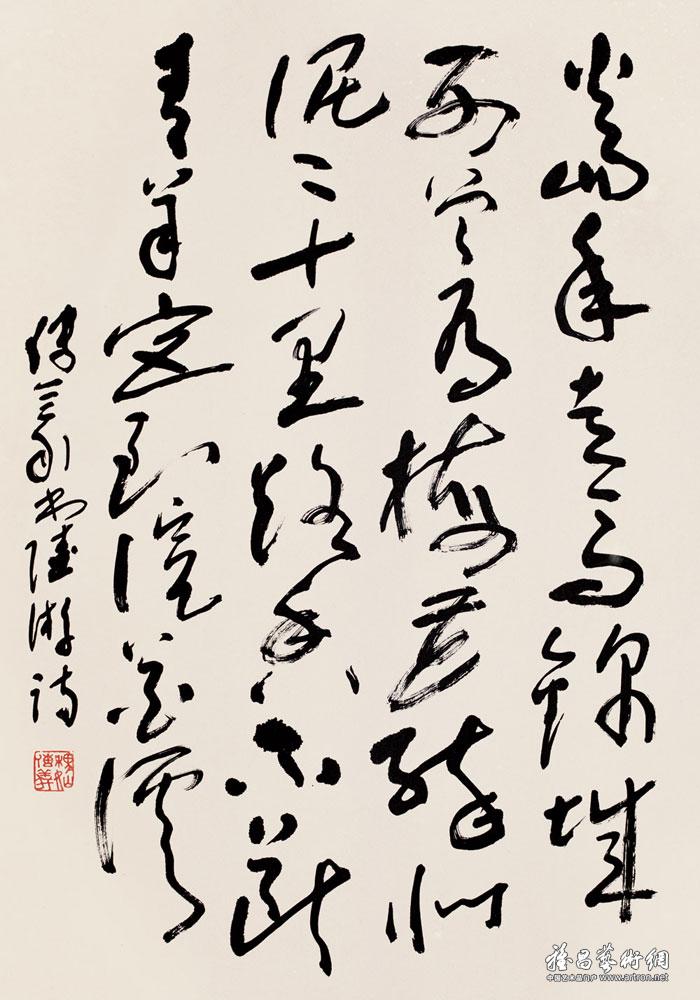 當年走馬錦城
西曾為梅花醉似
泥二十里路香不斷
青羊宮到浣花溪
書陸游詩
雅昌藝術網
中国艺术品门户 www.artron.net